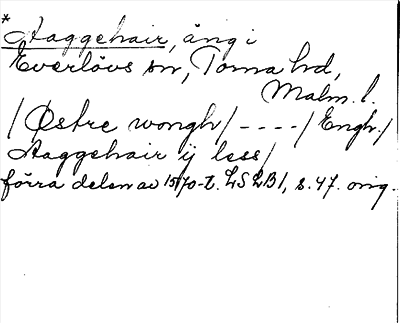 * Haggehair, äng i
Everlövs sn, Torna hd,
Malm. l.
/Østre wongh/ ----/Engh./
Haggehair ij less/
förra delen av 1570-t. LSLB1, s. 47. orig.